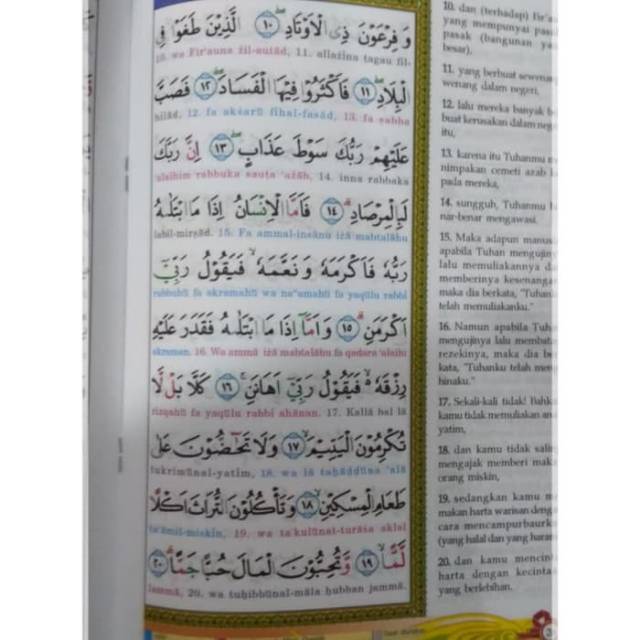 وَفِرْعَوْنَ ذِى الْاَوْتَادِۖ ١٠ الَّذِيْنَ طَغَوْا فِى
10. wa Fir'auna żil-autād, 11. allażīna ṭagau fil-
الْبِلَادِۖ ١١ فَاَكْثَرُوْا فِيْهَا الْفَسَادَۖ ١٢ فَصَبَّ
bilād, 12. fa akṡarū fīhal-fasād, 13. fa ṣabba
عَلَيْهِمْ رَبُّكَ سَوْطَ عَذَابٍۖ ١٣ اِنَّ رَبَّكَ
'alaihim rabbuka sauṭa 'ażāb, 14. inna rabbaka
لَبِالْمِرْصَادِۗ ١٤ فَاَمَّا الْاِنْسَانُ اِذَا مَا ابْتَلٰىهُ
labil-mirṣād. 15. Fa ammal-insānu iżā mabtalāhu
رَبُّهٗ فَاَكْرَمَهٗ وَنَعَّمَهٗۙ فَيَقُوْلُ رَبِّيْٓ
rabbuhū fa akramahū wa na''amahū fa yaqūlu rabbī
اَكْرَمَنِۗ ١٥ وَاَمَّآ اِذَا مَا ابْتَلٰىهُ فَقَدَرَ عَلَيْهِ
akraman. 16. Wa ammā iżā mabtalāhu fa qadara 'alaihi
رِزْقَهٗۙ فَيَقُوْلُ رَبِّيْٓ اَهَانَنِۚ ١٦ كَلَّا بَلْ لَّا
rizqahū fa yaqūlu rabbī ahānan. 17. Kallā bal lā
تُكْرِمُوْنَ الْيَتِيْمَۙ ١٧ وَلَا تَحٰۤضُّوْنَ عَلٰى
tukrimūnal-yatīm, 18. wa lā taḥāḍḍūna 'alā
طَعَامِ الْمِسْكِيْنِۙ ١٨ وَتَأْكُلُوْنَ التُّرَاثَ اَكْلًا
ṭa'āmil-miskīn, 19. wa ta'kulūnat-turāṡa aklal
لَّمًّاۙ ١٩ وَّتُحِبُّوْنَ الْمَالَ حُبًّا جَمًّاۗ ٢٠
lammā, 20. wa tuḥibbūnal-māla ḥubban jammā.
10. dan (terhadap)
yang mempunyai
pasak (bangunan
besar),
11. yang berbuat
wenang dalam negeri,
12. lalu mereka banyak
buat kerusakan dalam
itu,
13. karena itu Tuhanmu
nimpakan cemeti azab
pada mereka,
14. sungguh, Tuhanmu
nar-benar mengawasi.
15. Maka adapun
apabila Tuhan
lalu memuliakannya
memberinya
maka dia berkata,
telah memuliakanku."
16. Namun apabila
mengujinya lalu
rezekinya, maka dia
kata, "Tuhanku telah
hinaku."
17. Sekali-kali tidak!
kamu tidak memuliakan
yatim,
18. dan kamu tidak
mengajak memberi
orang miskin,
19. sedangkan kamu
makan harta warisan
cara
(yang halal dan yang
20. dan kamu
harta dengan
yang berlebihan.